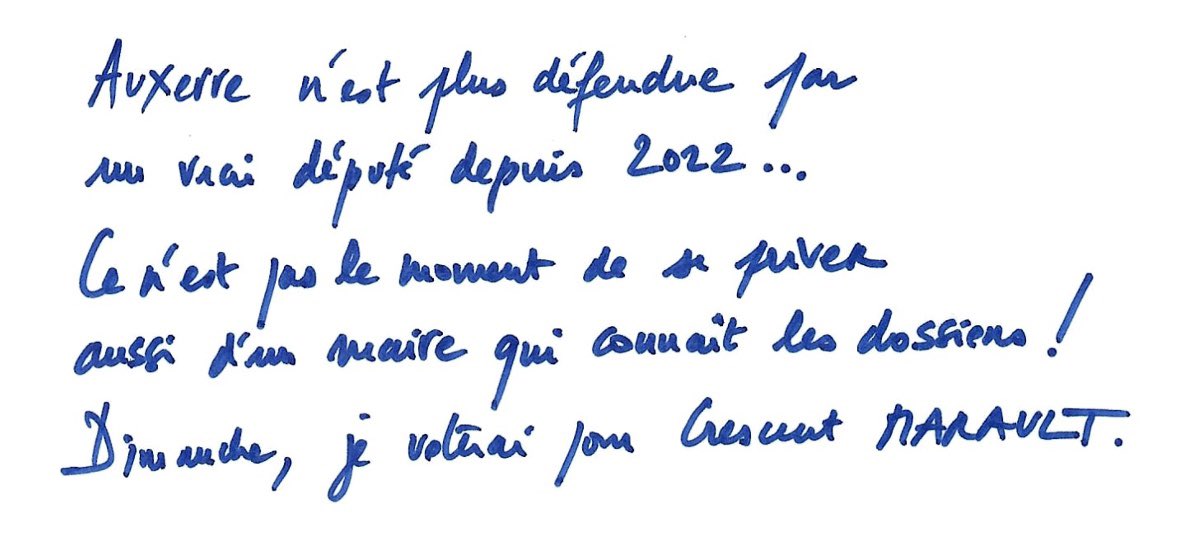 Auxerre n'est plus défendue par
un vrai député depuis 2022...
Ce n'est pas le moment de se priver
aussi d'un maire qui connaît les dossiers !
Dimanche, je voterai pour Crescent MARAULT.